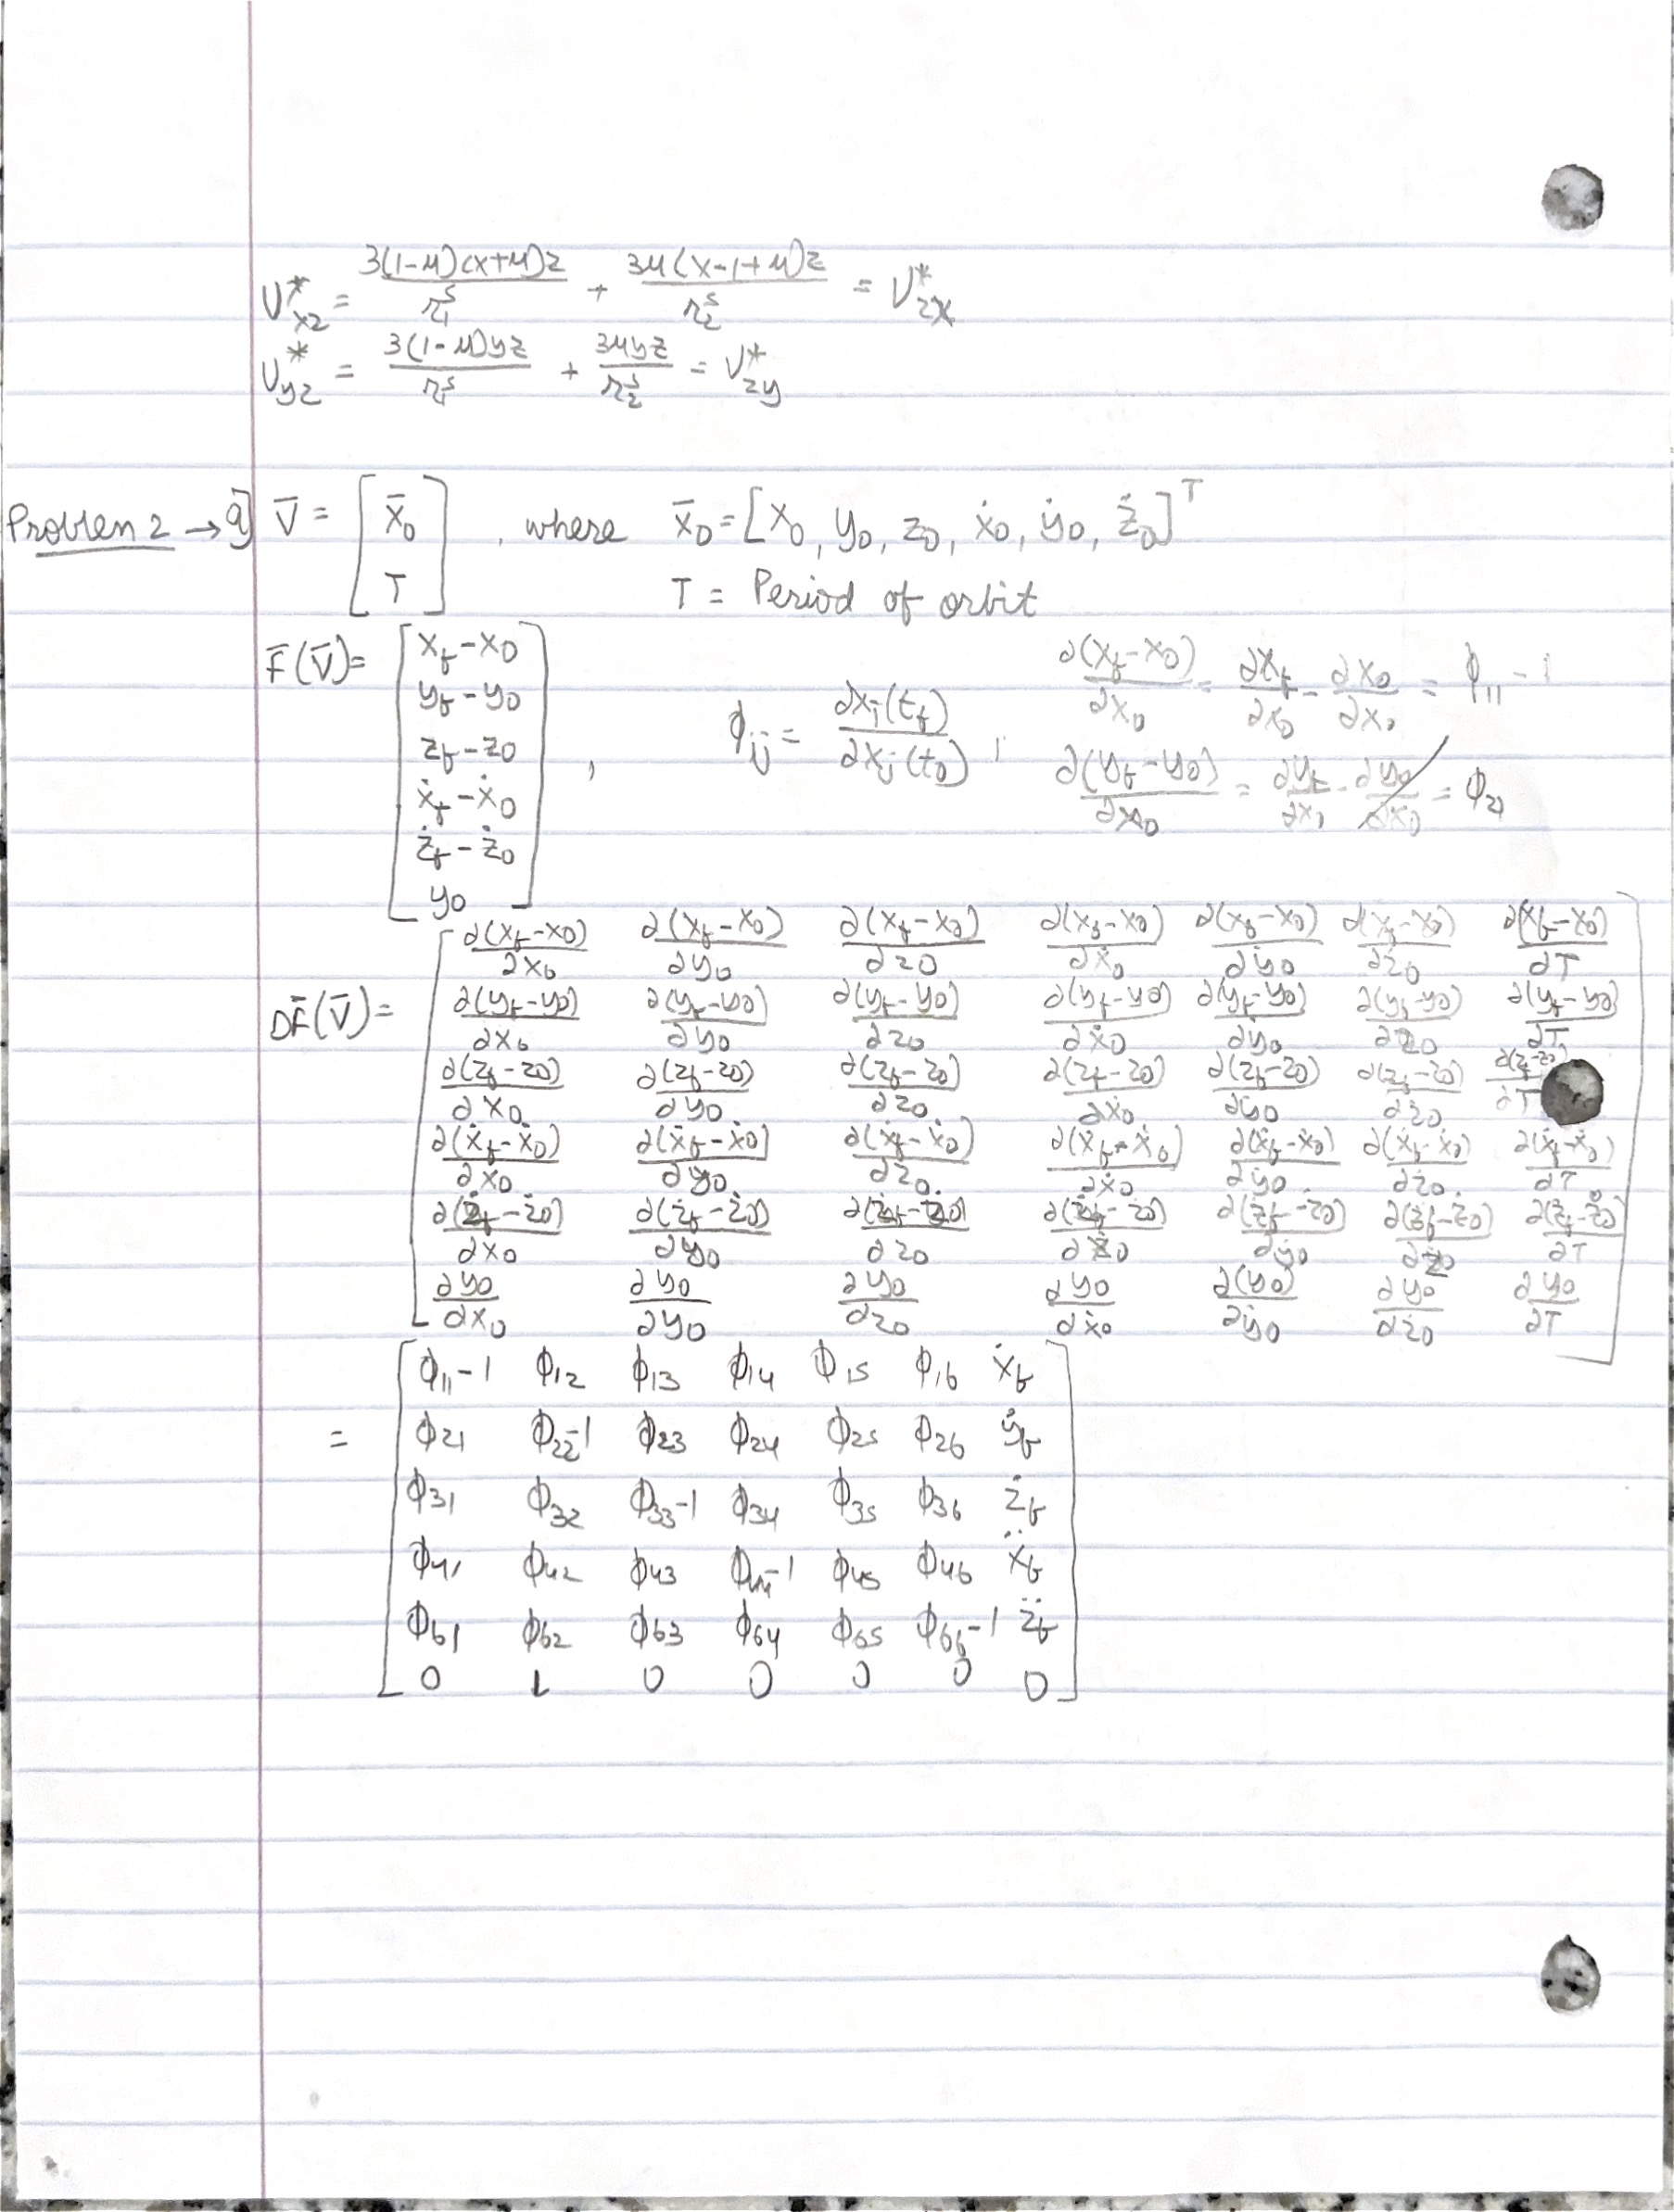 U*_xz = 3(1-μ)(x+μ)z / r₁⁵ + 3μ(x-1+μ)z / r₂⁵ = U*_zx
U*_yz = 3(1-μ)yz / r₁⁵ + 3μyz / r₂⁵ = U*_zy
Problem 2 → a] V̄ = [ x̄₀ ; T ], where x̄₀ = [x₀, y₀, z₀, ẋ₀, ẏ₀, ż₀]ᵀ
T = Period of orbit
F̄(V̄) = [ x_f - x₀ ; y_f - y₀ ; z_f - z₀ ; ẋ_f - ẋ₀ ; ż_f - ż₀ ; y₀ ] , ϕ_ij = ∂x_i(t_f) / ∂x_j(t₀) ,
∂(x_f - x₀)/∂x₀ = ∂x_f/∂x₀ - ∂x₀/∂x₀ = ϕ₁₁ - 1
∂(y_f - y₀)/∂x₀ = ∂y_f/∂x₀ - ∂y₀/∂x₀ = ϕ₂₁
DF̄(V̄) =
∂(x_f - x₀)/∂x₀ ∂(x_f - x₀)/∂y₀ ∂(x_f - x₀)/∂z₀ ∂(x_f - x₀)/∂ẋ₀ ∂(x_f - x₀)/∂ẏ₀ ∂(x_f - x₀)/∂ż₀ ∂(x_f - x₀)/∂T
∂(y_f - y₀)/∂x₀ ∂(y_f - y₀)/∂y₀ ∂(y_f - y₀)/∂z₀ ∂(y_f - y₀)/∂ẋ₀ ∂(y_f - y₀)/∂ẏ₀ ∂(y_f - y₀)/∂ż₀ ∂(y_f - y₀)/∂T
∂(z_f - z₀)/∂x₀ ∂(z_f - z₀)/∂y₀ ∂(z_f - z₀)/∂z₀ ∂(z_f - z₀)/∂ẋ₀ ∂(z_f - z₀)/∂ẏ₀ ∂(z_f - z₀)/∂ż₀ ∂(z_f - z₀)/∂T
∂(ẋ_f - ẋ₀)/∂x₀ ∂(ẋ_f - ẋ₀)/∂y₀ ∂(ẋ_f - ẋ₀)/∂z₀ ∂(ẋ_f - ẋ₀)/∂ẋ₀ ∂(ẋ_f - ẋ₀)/∂ẏ₀ ∂(ẋ_f - ẋ₀)/∂ż₀ ∂(ẋ_f - ẋ₀)/∂T
∂(ż_f - ż₀)/∂x₀ ∂(ż_f - ż₀)/∂y₀ ∂(ż_f - ż₀)/∂z₀ ∂(ż_f - ż₀)/∂ẋ₀ ∂(ż_f - ż₀)/∂ẏ₀ ∂(ż_f - ż₀)/∂ż₀ ∂(ż_f - ż₀)/∂T
∂y₀/∂x₀ ∂y₀/∂y₀ ∂y₀/∂z₀ ∂y₀/∂ẋ₀ ∂(y₀)/∂ẏ₀ ∂y₀/∂ż₀ ∂y₀/∂T
=
ϕ₁₁-1 ϕ₁₂ ϕ₁₃ ϕ₁₄ ϕ₁₅ ϕ₁₆ ẋ_f
ϕ₂₁ ϕ₂₂-1 ϕ₂₃ ϕ₂₄ ϕ₂₅ ϕ₂₆ ẏ_f
ϕ₃₁ ϕ₃₂ ϕ₃₃-1 ϕ₃₄ ϕ₃₅ ϕ₃₆ ż_f
ϕ₄₁ ϕ₄₂ ϕ₄₃ ϕ₄₄-1 ϕ₄₅ ϕ₄₆ ẍ_f
ϕ₆₁ ϕ₆₂ ϕ₆₃ ϕ₆₄ ϕ₆₅ ϕ₆₆-1 z̈_f
0 1 0 0 0 0 0